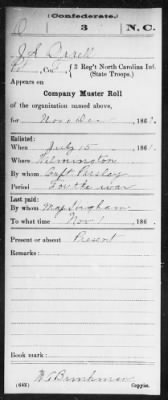 (Confederate.)
3 N.C.
Co. , 3 Reg't North Carolina Inf.
(State Troops.)
Appears on
Company Muster Roll
of the organization named above,
for Nov & Dec , 186
Enlisted:
When July 15 , 186
Where Wilmington
By whom Capt Parsley
Period For the war
Last paid:
By whom Maj Ingham
To what time Nov 1 , 186
Present or absent Present
Remarks:
Book mark:
(642) Copyist.